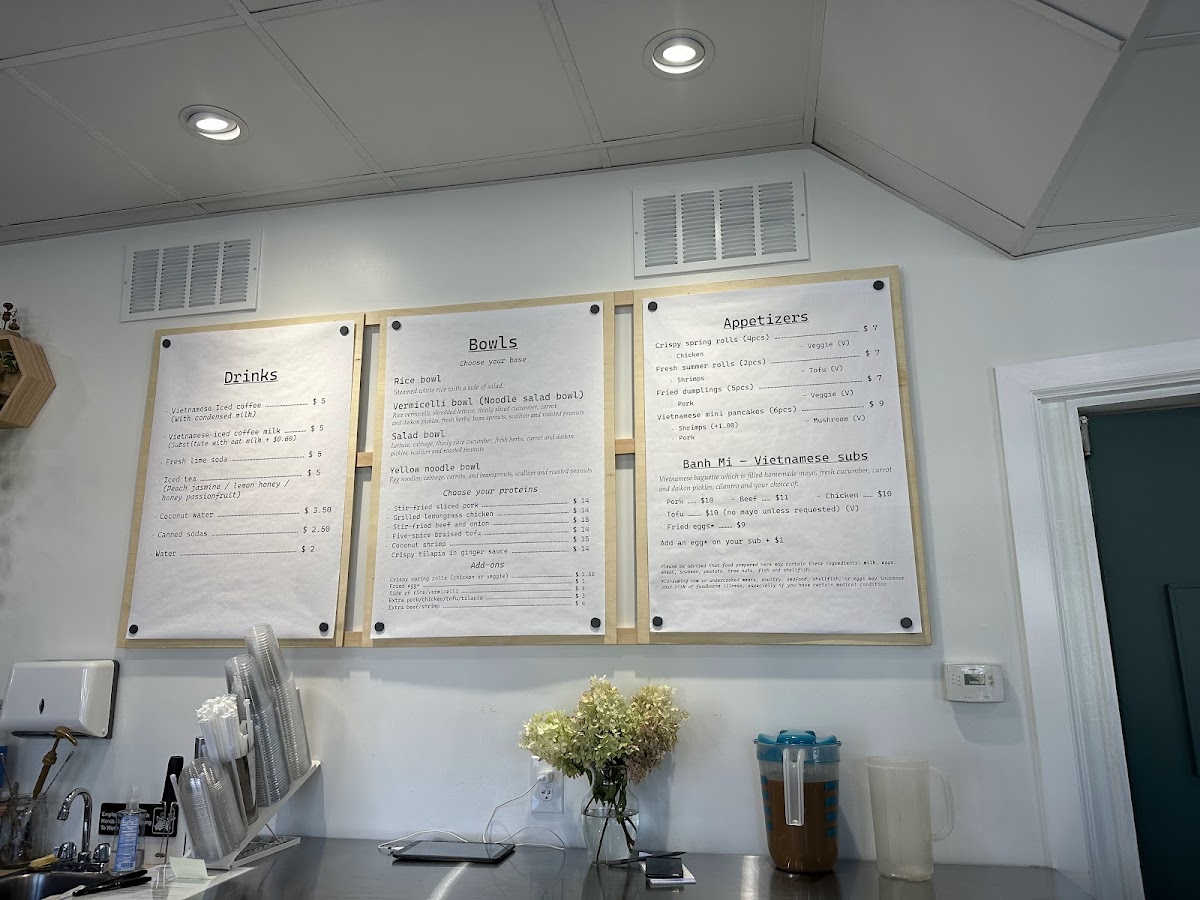 Drinks
- Vietnamese Iced coffee $ 5
(With condensed milk)
- Vietnamese iced coffee milk $ 5
(Substitute with oat milk + $0.60)
- Fresh lime soda $ 5
- Iced tea $ 5
(Peach jasmine / lemon honey /
honey passionfruit)
- Coconut water $ 3.50
- Canned sodas $ 2.50
- Water $ 2
Bowls
Choose your base
Rice bowl
Steamed white rice with a side of salad
Vermicelli bowl (Noodle salad bowl)
Rice vermicelli, shredded lettuce, thinly sliced cucumber, carrot
and daikon pickles, fresh herbs, bean sprouts, scallion and roasted peanuts
Salad bowl
Lettuce, cabbage, thinly slice cucumber, fresh herbs, carrot and daikon
pickles, scallion and roasted peanuts
Yellow noodle bowl
Egg noodles, cabbage, carrots, and beansprouts, scallion and roasted peanuts
Choose your proteins
- Stir-fried sliced pork $ 14
- Grilled lemongrass chicken $ 14
- Stir-fried beef and onion $ 15
- Five-spice braised tofu $ 14
- Coconut shrimp $ 15
- Crispy tilapia in ginger sauce $ 14
Add-ons
Crispy spring rolls (chicken or veggie) $ 1.50
Fried egg*
Side of rice/vermicelli
Extra pork/chicken/tofu/tilapia $ 3
Extra beef/shrimp $ 4
Appetizers
Crispy spring rolls (4pcs) $ 7
- Chicken - Veggie (V)
Fresh summer rolls (2pcs) $ 7
- Shrimps - Tofu (V)
Fried dumplings (5pcs) $ 7
- Pork - Veggie (V)
Vietnamese mini pancakes (6pcs) $ 9
- Shrimps (+1.00) - Mushroom (V)
- Pork
Banh Mi - Vietnamese subs
Vietnamese baguette which is filled homemade mayo, fresh cucumber, carrot
and daikon pickles, cilantro and your choice of:
- Pork $10 - Beef $11 - Chicken $10
- Tofu $10 (no mayo unless requested) (V)
- Fried eggs* $9
Add an egg* on your sub + $1
Please be advised that food prepared here may contain these ingredients: milk, eggs
wheat, soybean, peanuts, tree nuts, fish and shellfish
*Consuming raw or undercooked meats, poultry, seafood, shellfish, or eggs may increase
your risk of foodborne illness, especially if you have certain medical condition